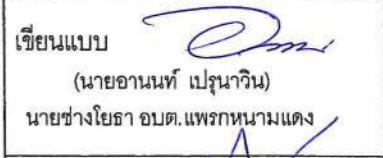 เขียนแบบ
(นายอานนท์ เปรุนาวิน)
นายช่างโยธา อบต.แพรกหนามแดง